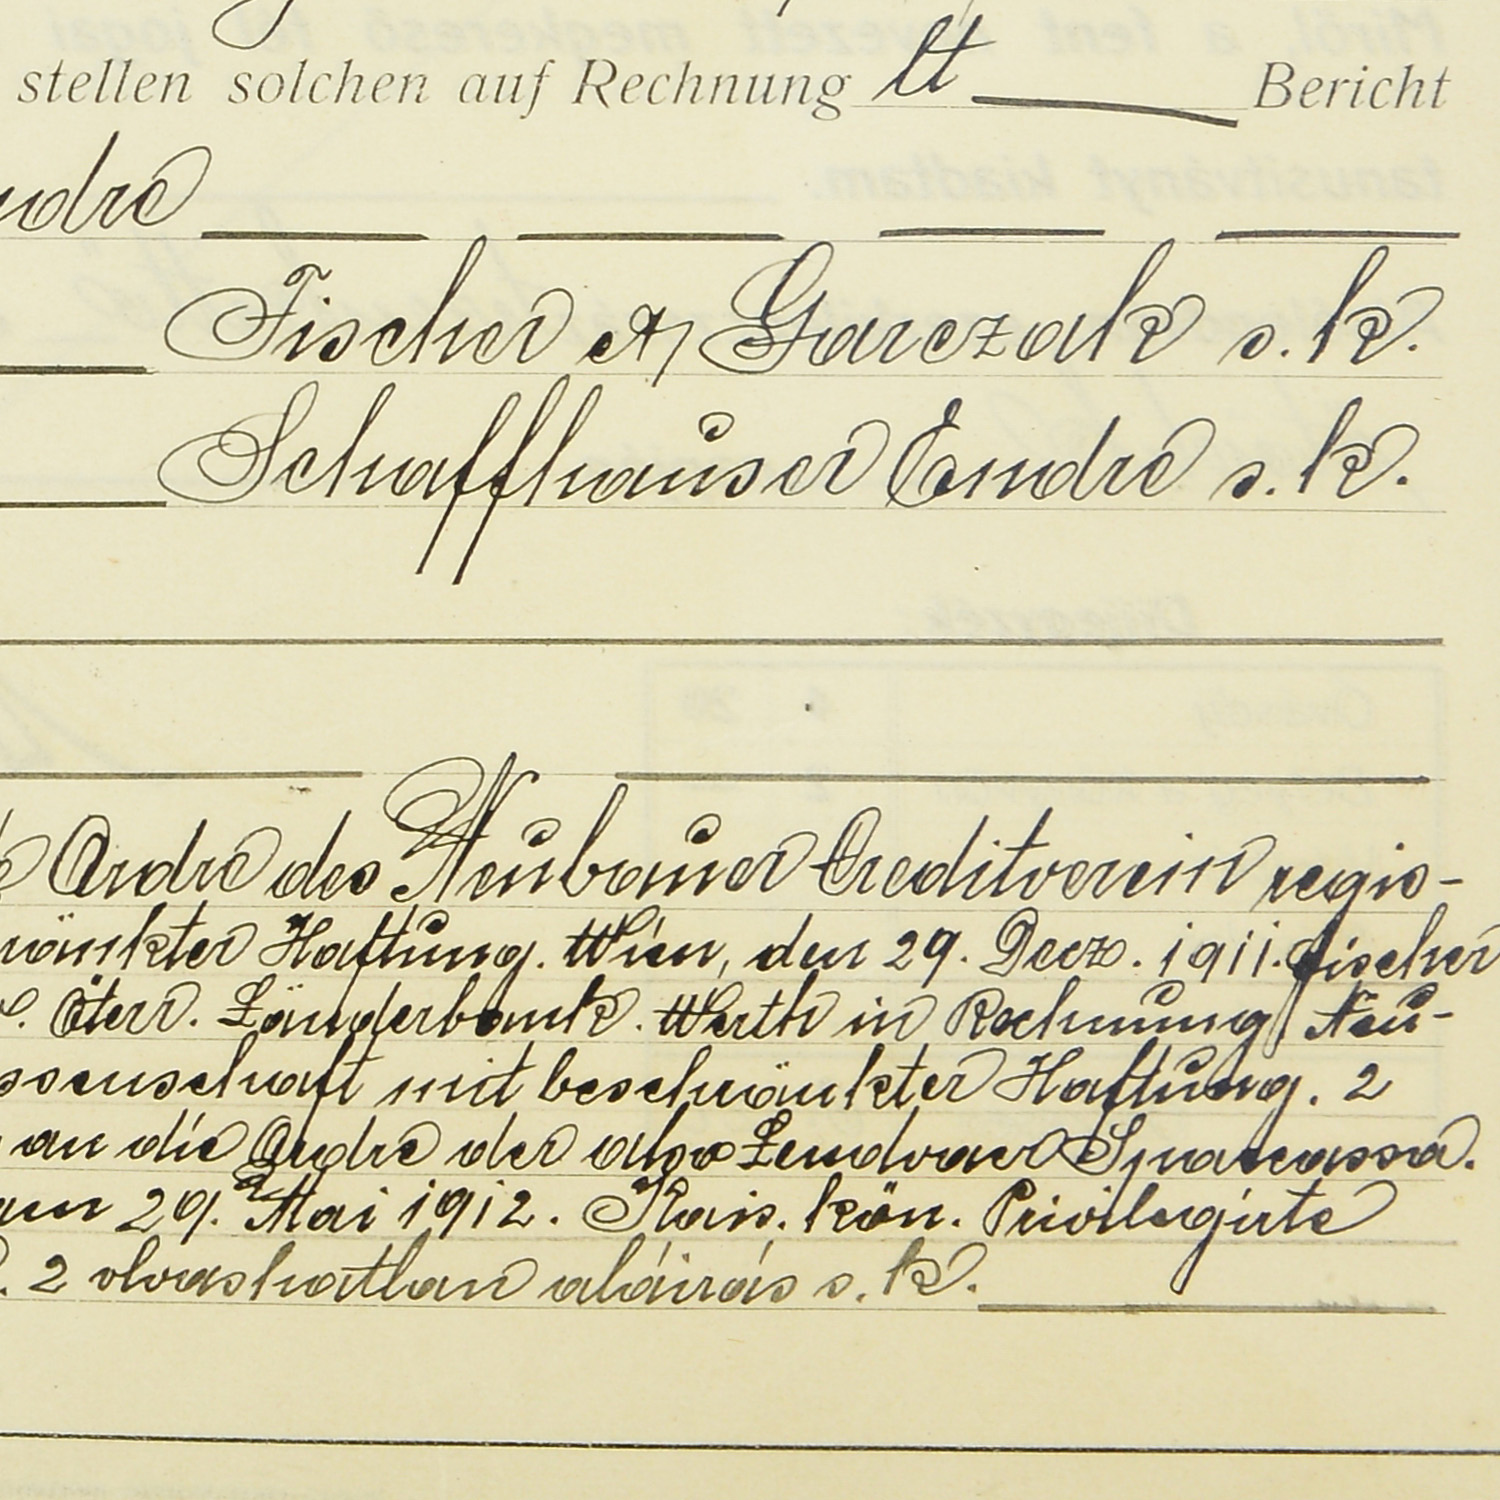 stellen solchen auf Rechnung lt Bericht
Fischer & Garczak s. k.
Schaffhauser Endre s. k.
Ordre des Neubauer Creditverein regis-
Haftung. Wien, den 29. Decz. 1911. Fischer
Öterr. Länderbank. Werth in Rechnung Neu-
ssenschaft mit beschränkter Haftung. 2
an die Ordre der also Lendvaer Sparcassa.
29. Mai 1912. Kais. kön. Privilegirte
2 olvashatlan aláirás s. k.